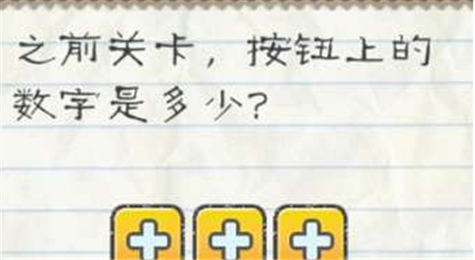 之前关卡，按钮上的
数字是多少?